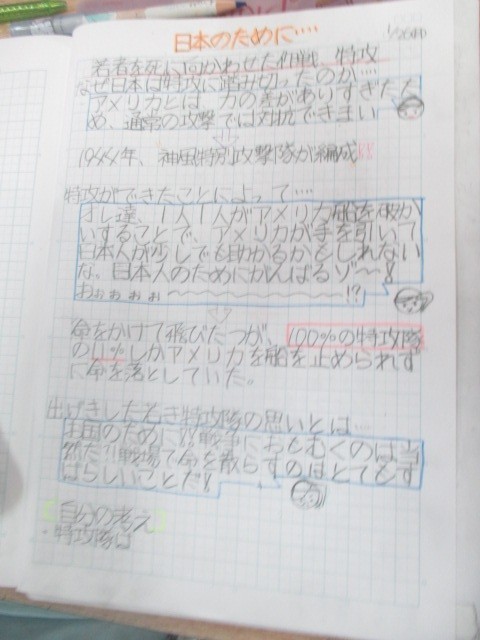 日本のために….
1/26(月)
若者を死に向かわせた作戦 特攻
なぜ日本は特攻に踏み切ったのか….
アメリカとは、力の差がありすぎたた
め、通常の攻撃では対抗できまい
1944年、神風特別攻撃隊が編成!!
特攻ができたことによって….
オレ達、1人1人がアメリカ船を破か
いすることで、アメリカが手を引いて
日本人が少しでも助かるかもしれない
な。日本人のためにがんばるゾ〜!
おぉぉぉぉ〜〜〜!?
命をかけて飛びたつが、100%の特攻隊
の しかアメリカを船を止められず
に命を落としていた。
出げきした若き特攻隊の思いとは…
国のために!!戦争におもむくのは当
然だ?!戦場で命を散らすのはとてもす
ばらしいことだ!
[自分の考え]
・特攻隊は